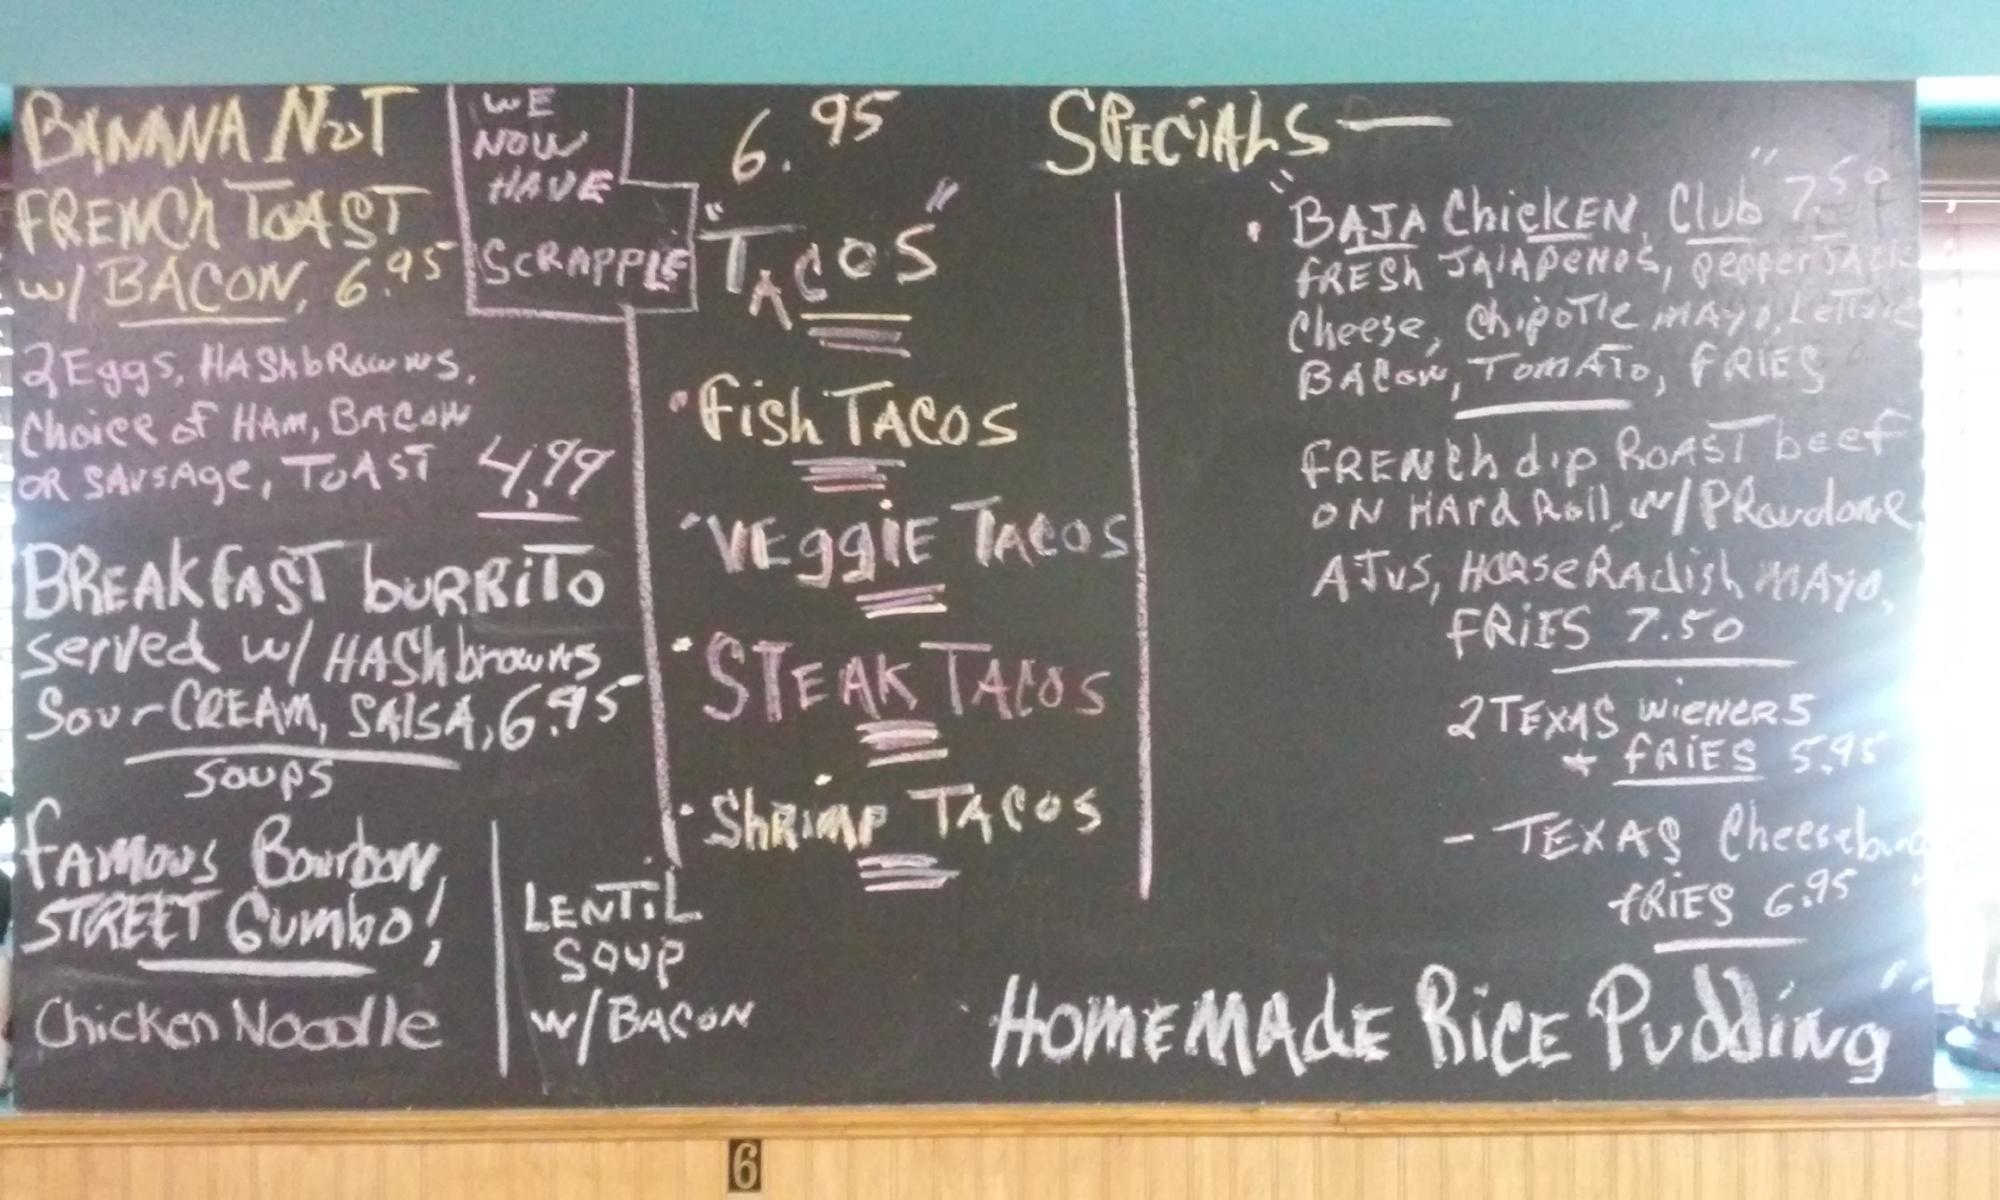 BANANA NUT
FRENCH TOAST
w/ BACON, 6.95
2 Eggs, HAShbRowns,
Choice of HAM, BACON
OR SAUSAge, TOAST 4.99
BREAKfAST buRRiTo
served w/ HAShbrowns
Sour CREAM, SAlSA, 6.95
Soups
fAmous Bourbon
STREET Gumbo!
Chicken Noodle
LENTiL
SOUP
w/BACON
WE
NOW
HAVE
SCRAPPLE
6.95
"TACOS"
• fish TACOS
• VEggiE TACOS
• STEAK TACOS
• Shrimp TACOS
SPECiALS —
• "BAJA ChicKEN Club" 7.50
fRESh JAlApeNoS, pepperJAck
Cheese, ChipoTle mAyo, LeTTuce
BACon, TomATo, FRIES
fRENch dip ROAST beef
ON HARd Roll, w/ PRovolone,
AJus, HorseRAdish mAyo,
fRiES 7.50
2 TEXAS wieners
+ fRIES 5.95
- TEXAS Cheeseburg
fRIES 6.95
HOMEMAdE RiCE Pudding
6